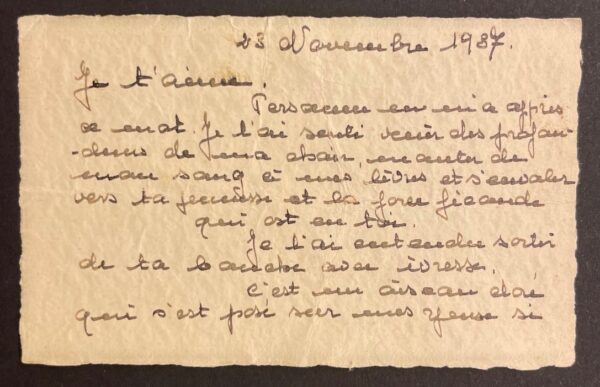 23 Novembre 1937.
Je t'aime.
Personne ne m'a appris
ce mot. Je l'ai senti venir des profon-
-deurs de ma chair, monter de
mon sang à mes lèvres et s'envoler
vers ta jeunesse et la force féconde
qui est en toi.
Je l'ai entendu sortir
de ta bouche avec ivresse.
C'est un oiseau doré
qui s'est posé sur mes yeux si